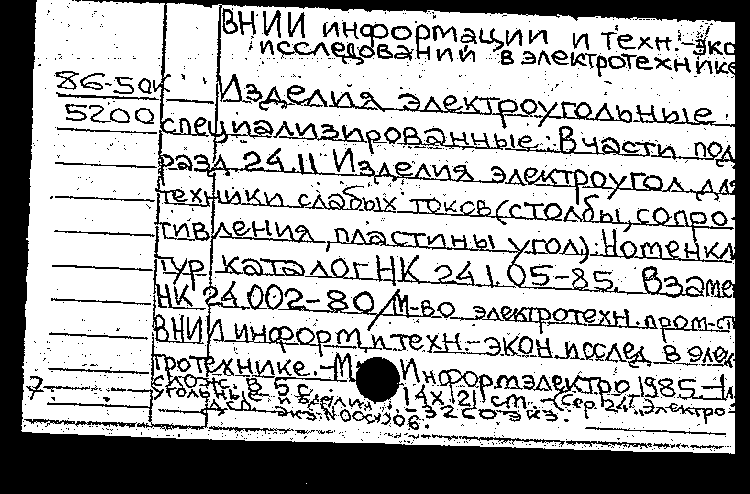 ВНИИ информации и техн.-эко
исследований в электротехнике
86-50к Изделия электроугольные
5200 специализированные: В части под
разд. 24.11 Изделия электроугол. для
техники слабых токов (столбы, сопро-
тивления, пластины угол): Номенкла
тур. каталог НК 24.1.05-85. Взаме
НК 24.002-80/М-во электротехн. пром-ст
ВНИИ информ. и техн.-экон. исслед. в элек
тротехнике.-М.: Информэлектро, 1985.-1л
слож. в 5 с. 14х21 cm.-(Сер. 24. "Электро-
угольные изделия"
7
Д.С.П. -3250 экз.
Экз. N 000206.